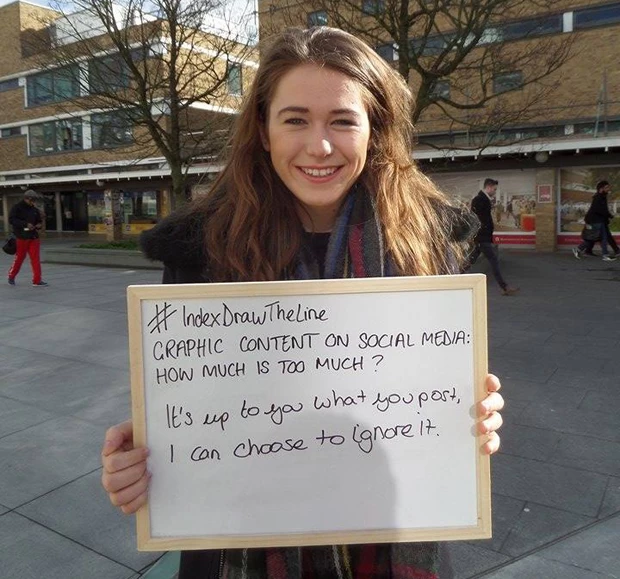 #IndexDrawTheLine
GRAPHIC CONTENT ON SOCIAL MEDIA:
HOW MUCH IS TOO MUCH?
It's up to you what you post,
I can choose to ignore it.